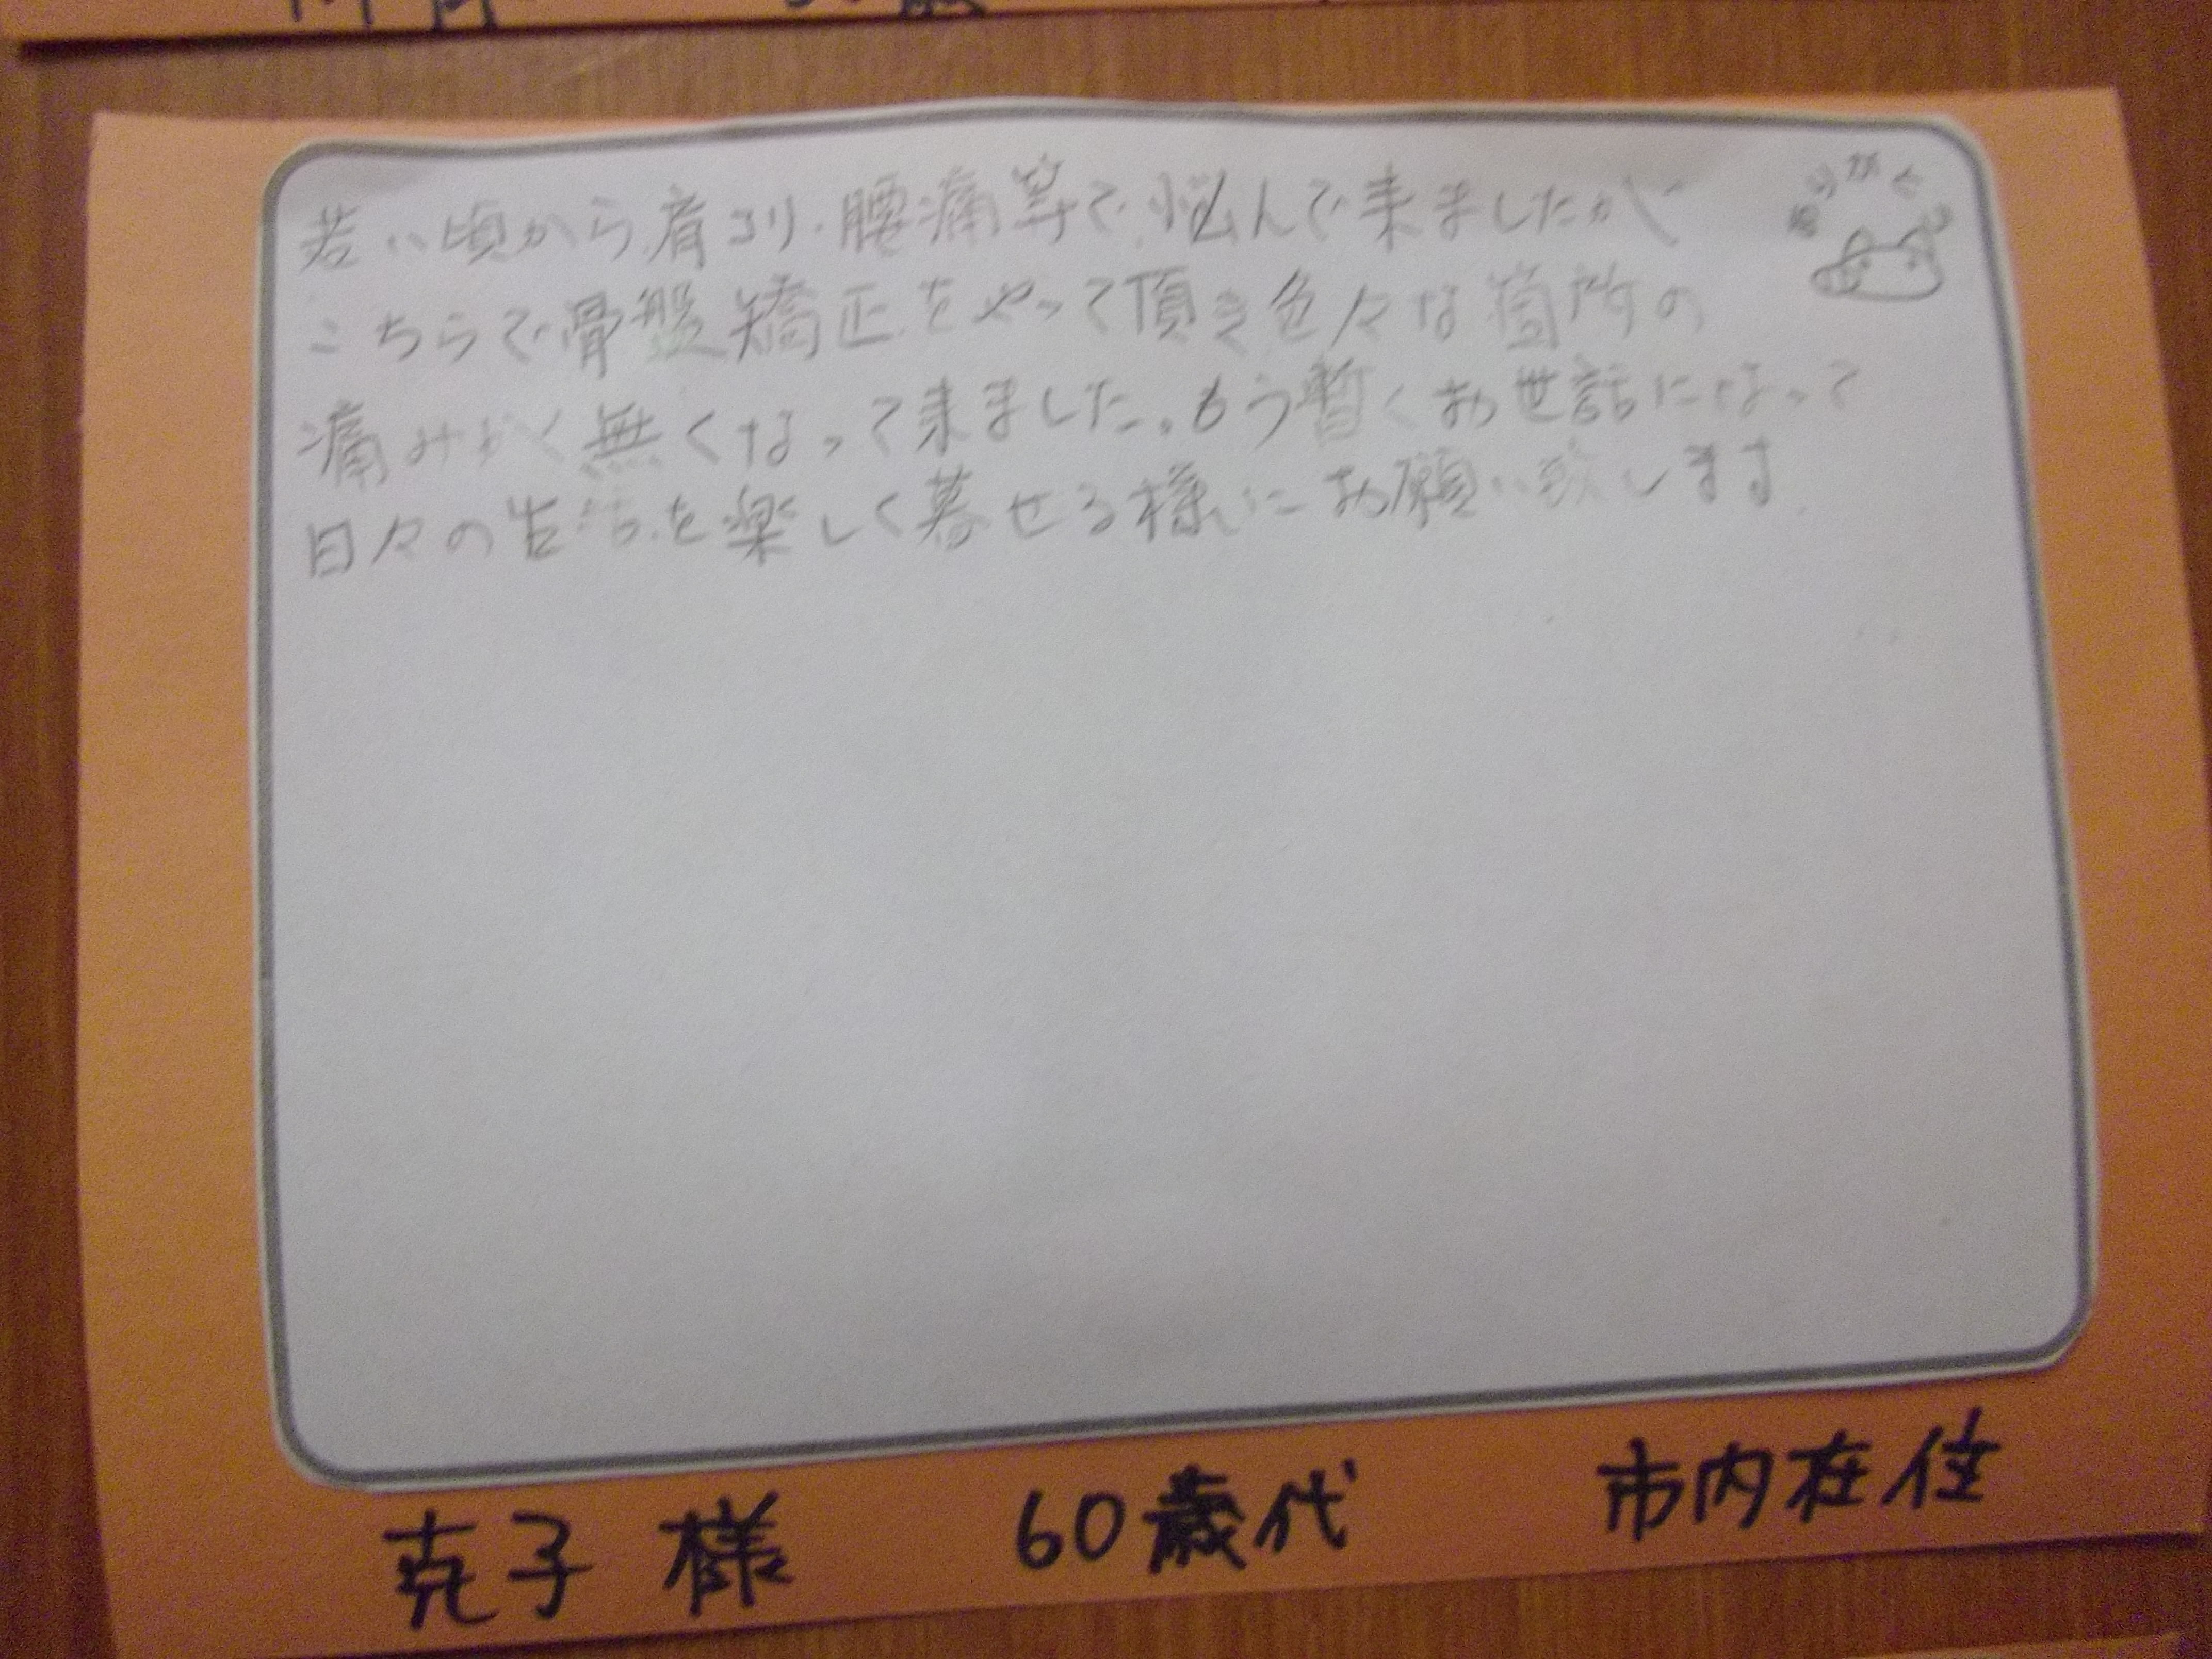 若い頃から肩コリ・腰痛等で悩んで来ましたが
こちらで骨盤矯正をやって頂き色々な箇所の
痛みが無くなって来ました。もう暫くお世話になって
日々の生活を楽しく暮せる様にお願い致します
ありがとう
克子 様 60歳代 市内在住